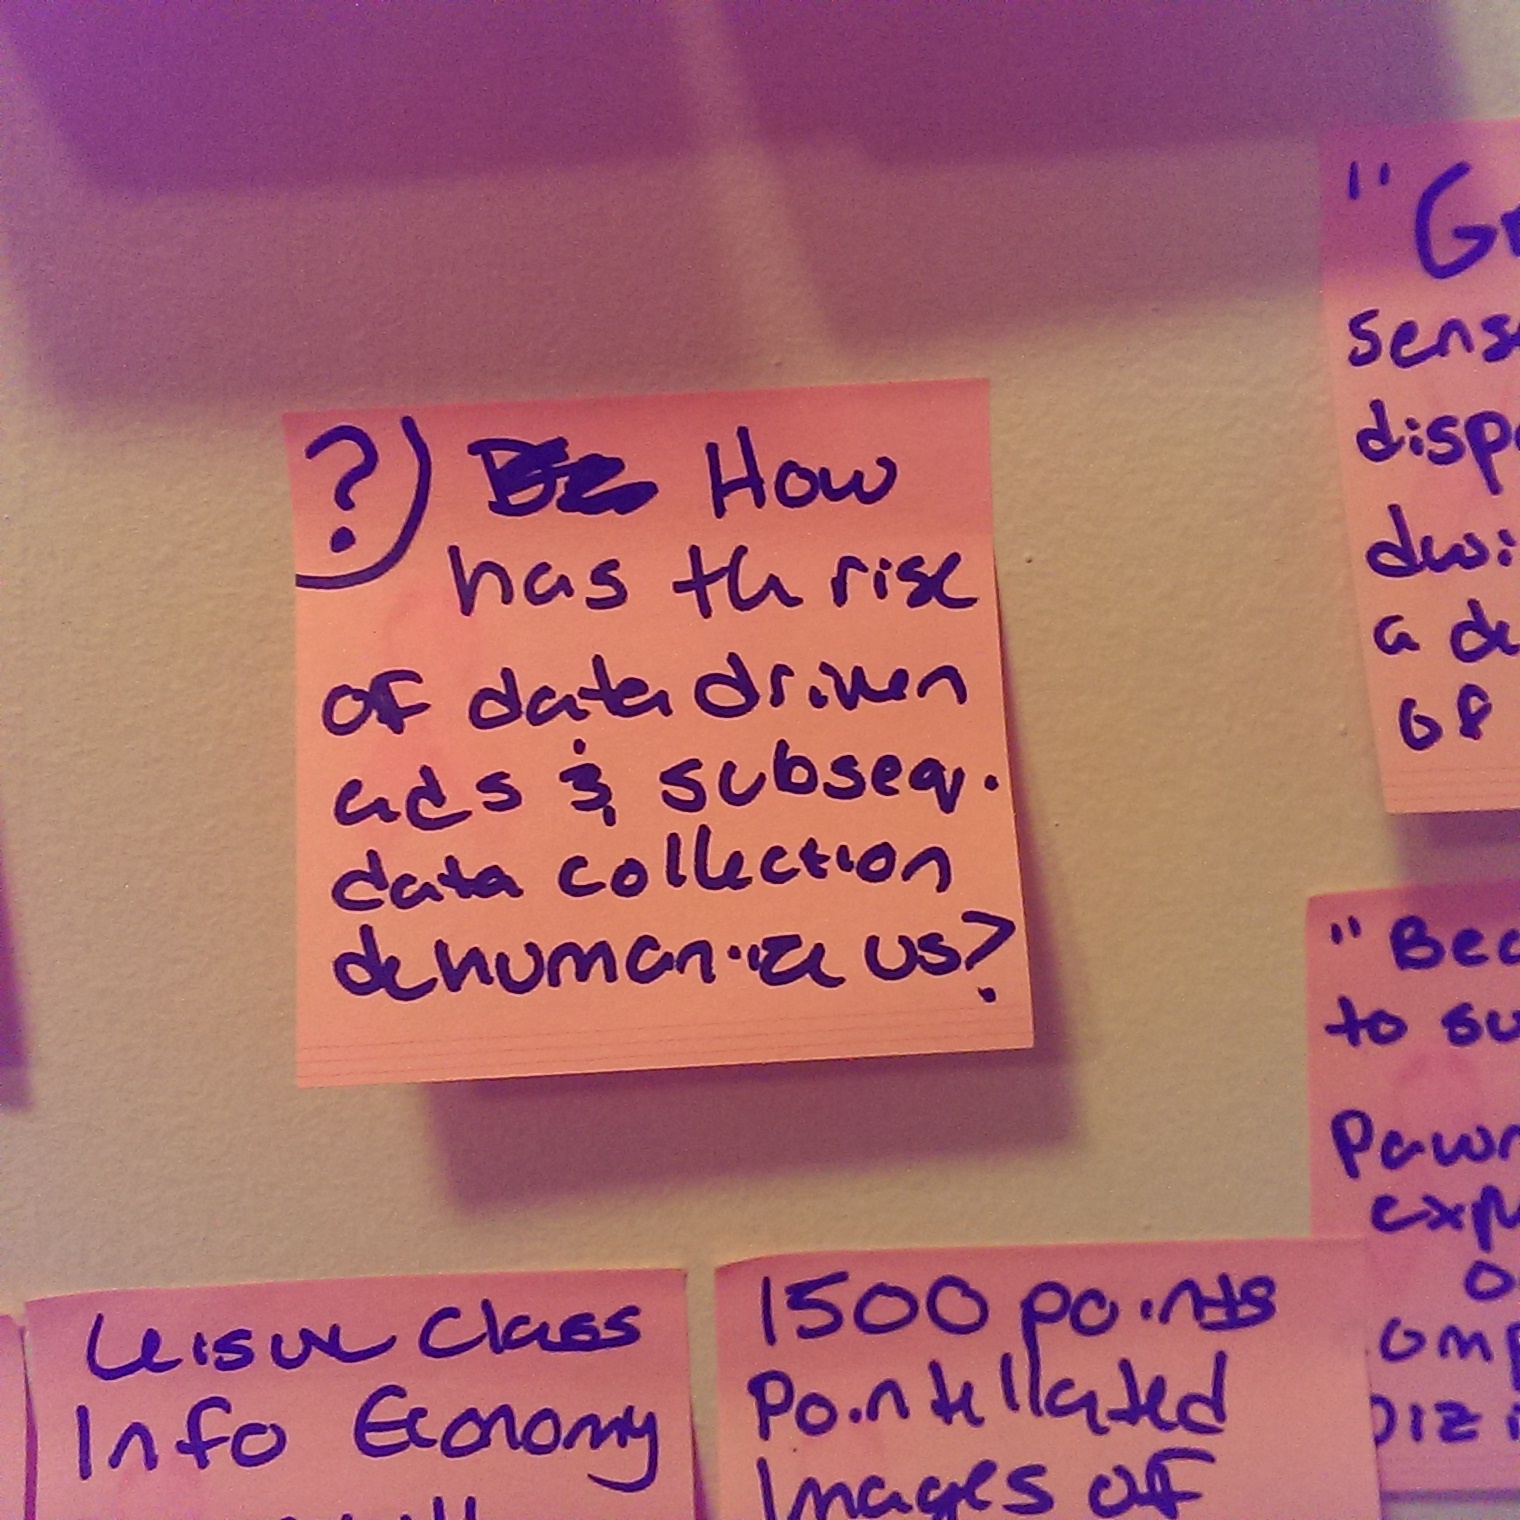 ?) How
has the rise
of data driven
ads & subseq.
data collection
dehumanize us?
"
disp
a de
of
"Bec
to su
Pawn
Leisure Class
Info Economy
1500 points
Pointellated
Images of